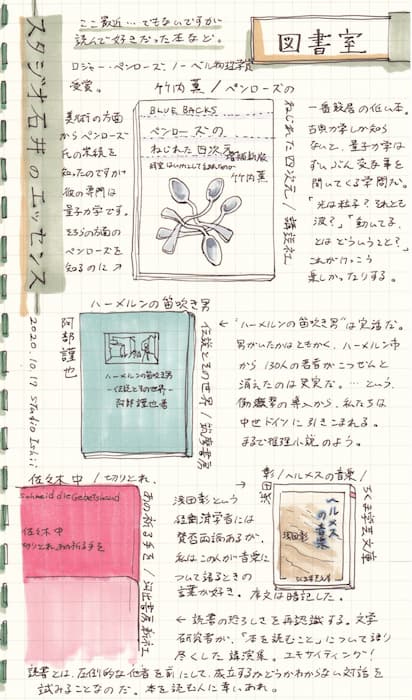 図書室
ここ最近…でもないですが
読んで好きだった本など。
スタジオ石井のエッセンス
2020.10.17 studio Ishii
ロジャー・ペンローズ、ノーベル物理学賞
受賞。
竹内薫/ペンローズの
ねじれた四次元/講談社
BLUE BACKS
ペンローズの
ねじれた四次元
増補新版
竹内薫
美術の方面
からペンローズ
氏の業績を
知ったのですが
彼の専門は
量子力学です。
そちらの方面の
ペンローズを
知るのに↗
一番敷居の低い本。
古典力学しか知ら
ないで、量子力学は
ずいぶん変な事を
聞いてくる学問だ。
「光は粒子?それとも
波?」「動いてる、
とはどういうこと?」
これがけっこう
楽しかったりする。
ハーメルンの笛吹き男
伝説とその世界/筑摩書房
阿部謹也
ハーメルンの笛吹き男
-伝説とその世界-
阿部謹也著
← "ハーメルンの笛吹き男"は実話だ。
男がいたかはともかく、ハーメルン市
から130人の若者がこつぜんと
消えたのは史実だ。…という、
衝撃の導入から、私たちは
中世ドイツに引きこまれる。
まるで推理小説のよう。
佐々木中/切りとれ、
あの祈る手を/河出書房新社
schneid die Gebetshand
佐々木中
切りとれ、あの祈る手を
浅田彰/ヘルメスの音楽/
ちくま学芸文庫
ヘルメス
の音楽
浅田彰
ちくま学芸文庫
浅田彰という
経済学者には
賛否両論あるが、
私はこの人が音楽に
ついて語るときの
言葉が好き。序文は暗記した。
← 読書の恐ろしさを再認識する。文学
研究者が、「本を読むこと」について語り
尽くした講演集。エキサイティング!
読書とは、圧倒的な他者を前にして、成立するかどうかわからない対話を
試みることなのだ。本を読む人に幸いあれ。